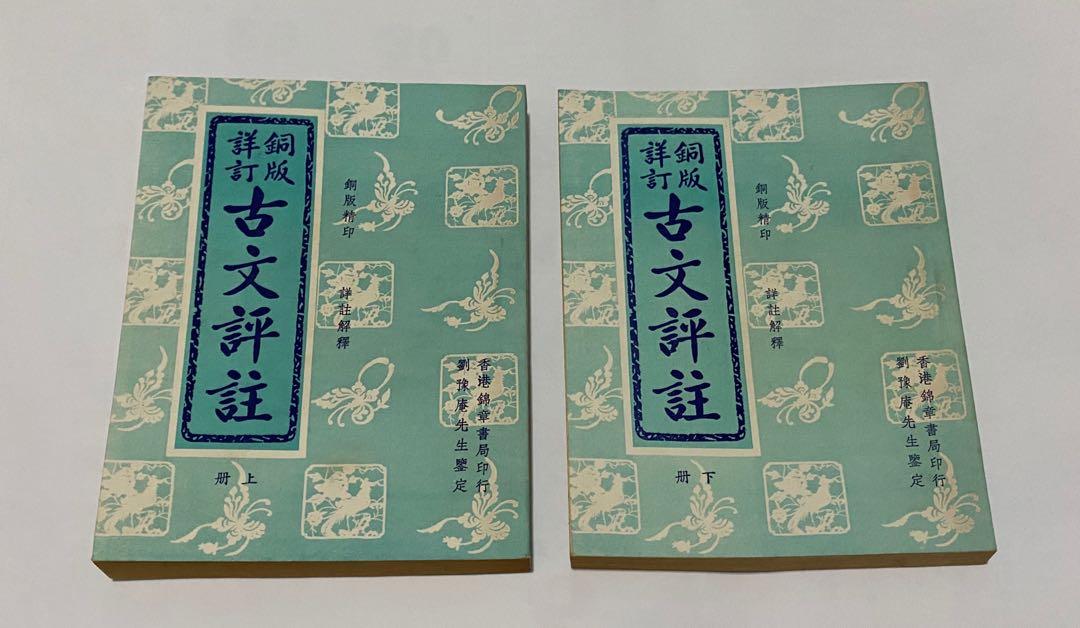 銅版
詳訂
古文評註
上册
銅版精印
詳註解釋
香港錦章書局印行
劉豫庵先生鑒定
銅版
詳訂
古文評註
下册
銅版精印
詳註解釋
香港錦章書局印行
劉豫庵先生鑒定